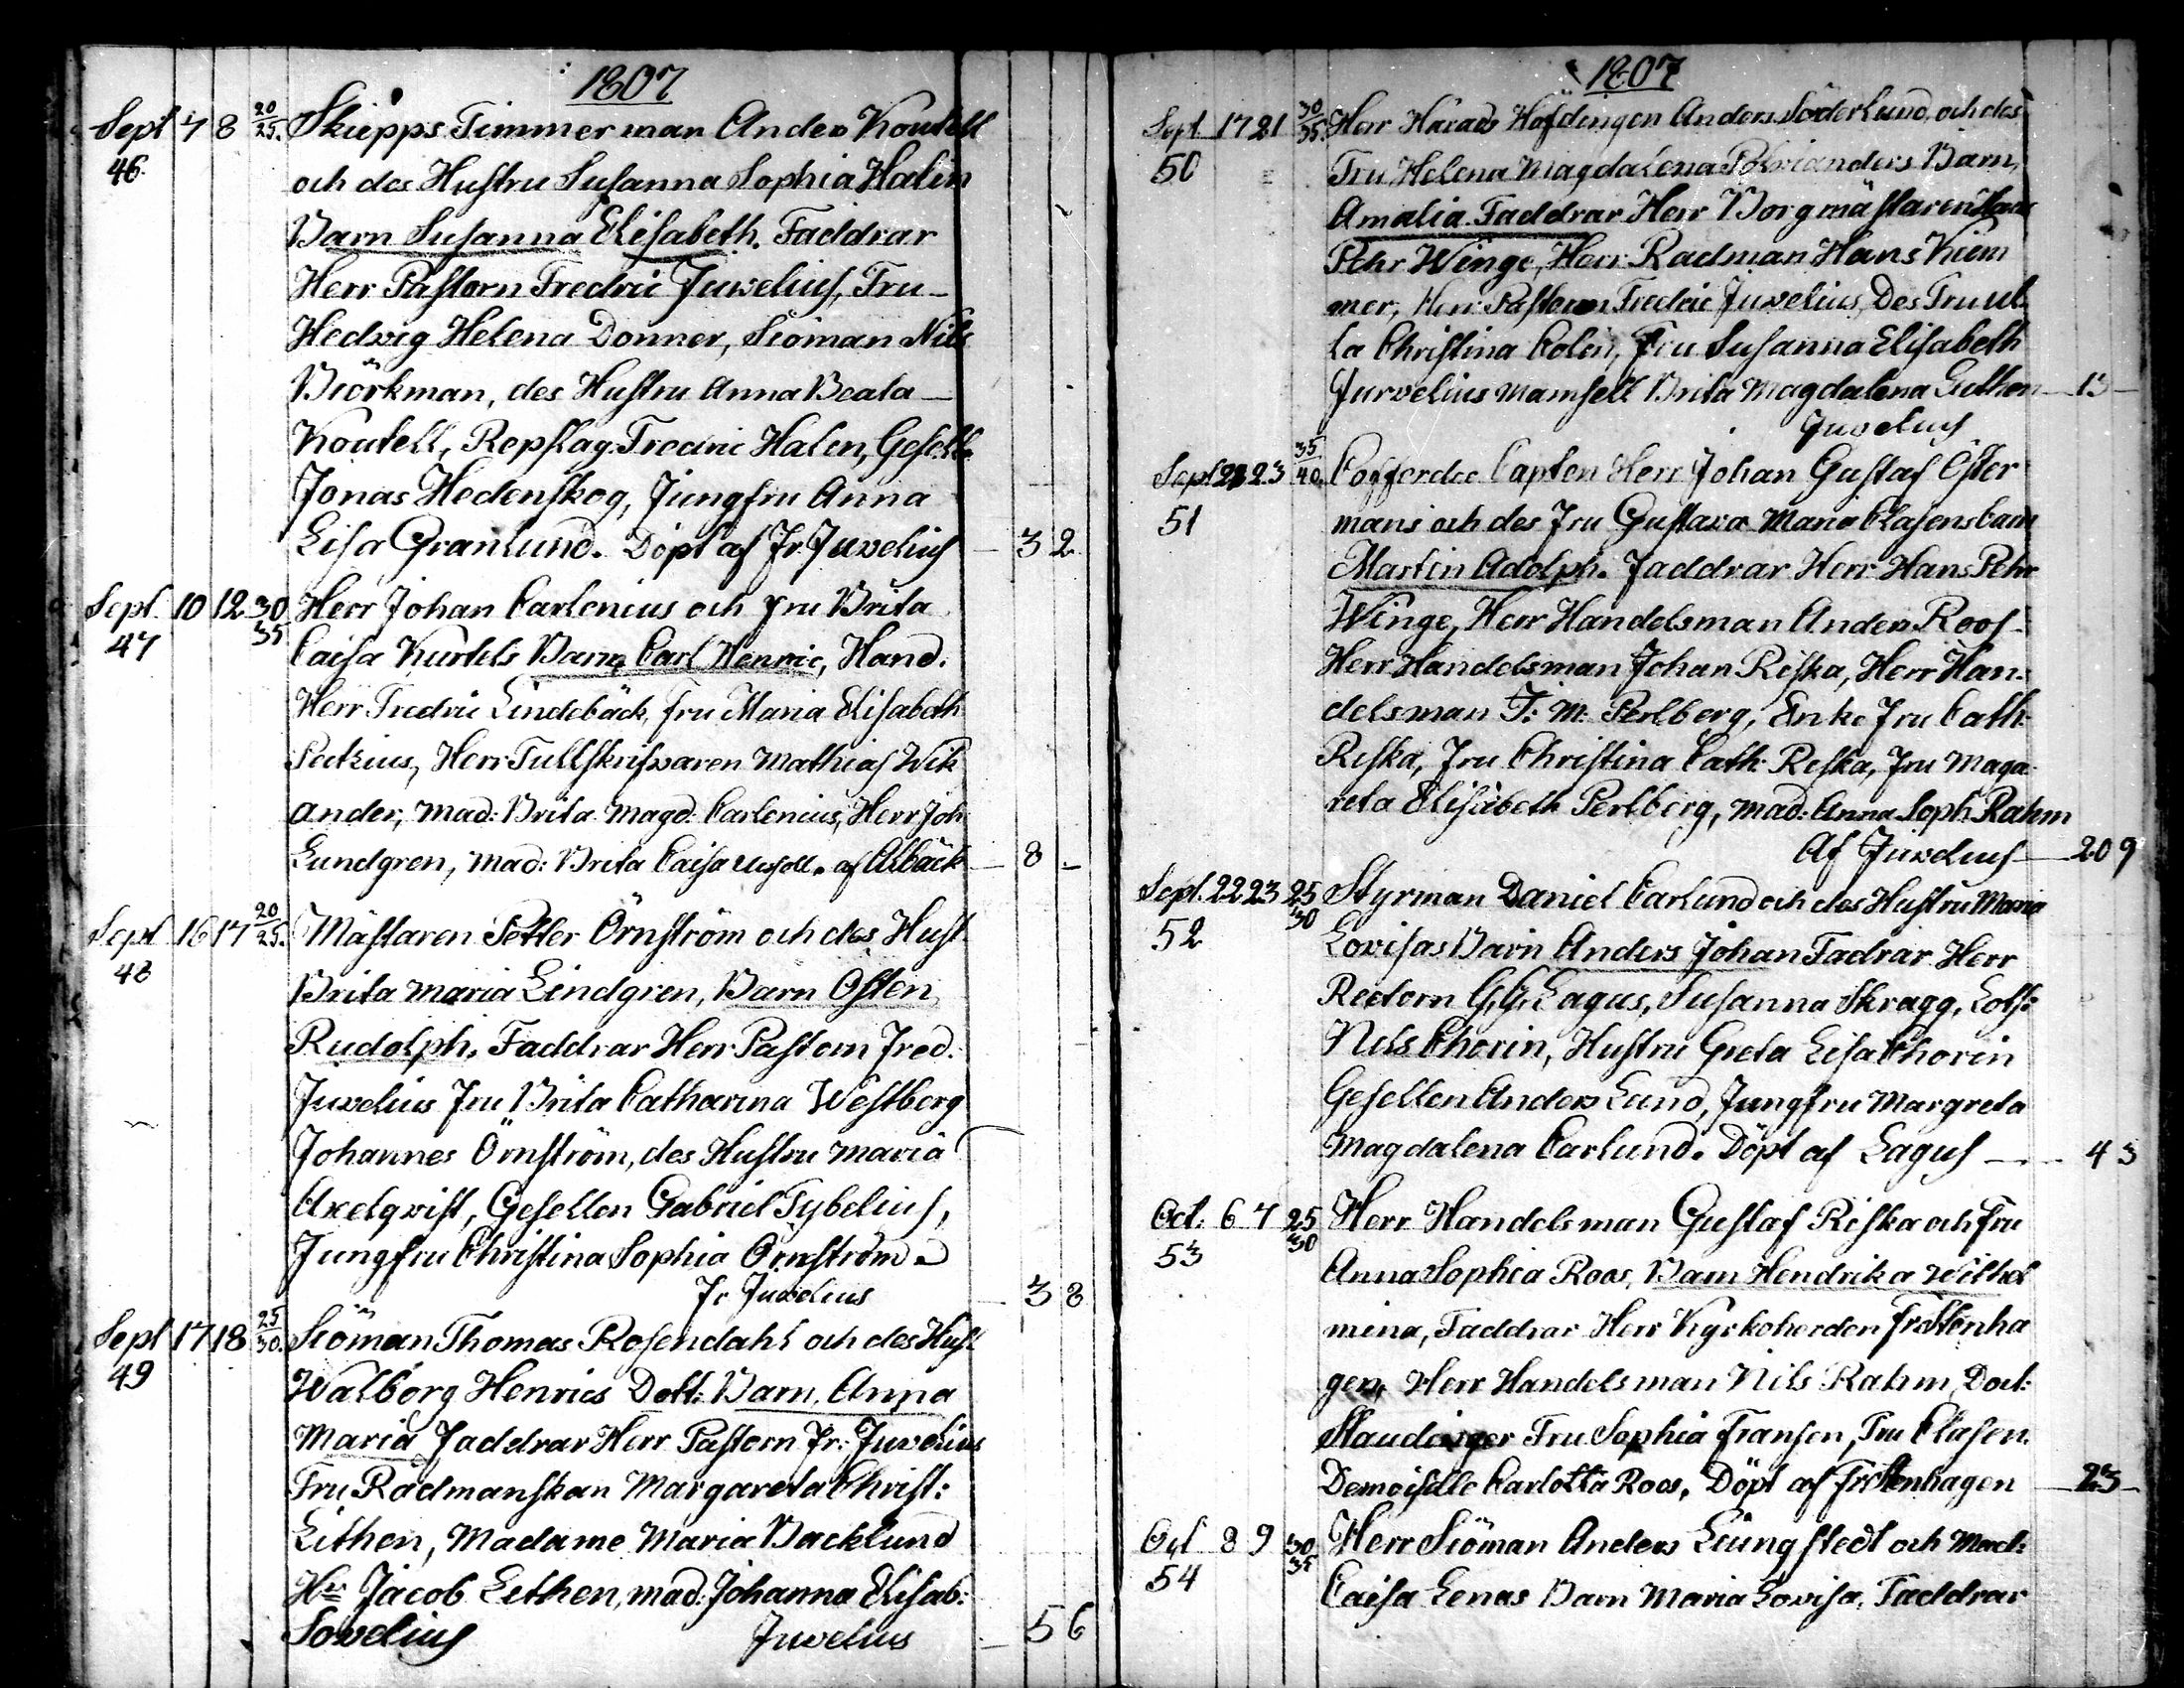 1807
Sept 7 8 20/25. Skiepps Timmerman Anders Koutell
46. och des Hustru Susanna Sophia Halin
Barn Susanna Elisabeth. Faddrar
Herr Pastorn Fredric Juvelius, Fru
Hedvig Helena Donner, Siöman Nils
Biörkman, des Hustru Anna Beata
Koutell, Repslag. Fredric Halen, Gesell.
Jonas Hedenskog, Jungfru Anna
Lisa Granlund. Döpt af Fr. Juvelius — 3 2
Sept. 10 12 30/35 Herr Johan Carlenius och Fru Brita
47 Caisa Kurtels Barn Carl Henric, Hand.
Herr Fredric Lindebäck, Fru Maria Elisabeth
Peitzius, Herr Tullskrifvaren Mathias Wik
ander, Mad: Brita Magd: Carlenius, Herr Joh
Lundgren, Mad: Brita Caisa af Albäck — 8 —
Sept 16 17 20/25. Mästaren Petter Örnström och des Hust
48 Brita Maria Lindgren, Barn Östen
Rudolph, Faddrar Herr Pastorn Fred.
Juvelius Fru Brita Catharina Westberg
Johannes Örnström, des Hustru Maria
Axelqvist, Gesellen Gabriel Tybelius,
Jungfru Christina Sophia Örnström
Fr Juvelius — 3 8
Sept 17 18 25/30. Siöman Thomas Rosendahl och des Hust
49 Walborg Henrics Dott: Barn, Anna
Maria Faddrar Herr Pastorn Fr. Juvelius
Fru Radmanskan Margareta Christ:
Lithen, Madame Maria Backlund
Hr Jacob Lithen, Mad: Johanna Elisab:
Sovelius Juvelius — 5 6
1807
Sept 17 21 30/35. Herr Härads Höfdingen Anders Söderlund, och des
50 Fru Helena Magdalena Polvianders Barn,
Amalia. Faddrar Herr Borgmästaren Hans
Pehr Winge, Herr Radman Hans Kiem
mer, Herr Pastorn Fredric Juvelius, Des Fru Ul
la Christina Colin, Fru Susanna Elisabeth
Jurvelius Mamsell Brita Magdalena Guthen — 13 —
Juvelius
Sept 22 23 35/40. Cofferdie Capten Herr Johan Gustaf Öster
51 mans och des Fru Gustava Maria Clasens barn
Martin Adolph. Faddrar Herr Hans Pehr
Winge, Herr Handelsman Anders Roos
Herr Handelsman Johan Riska, Herr Han-
delsman F: M: Perlberg, Enke Fru Cath:
Riska, Fru Christina Cath: Riska, Fru Maga
reta Elisabeth Perlberg, Mad: Anna Soph. Rahm
Af Juvelius — 20 9
Sept. 22 23 25/30 Styrman Daniel Carlund och des Hustru Maria
52 Lovisas Barn Anders Johan Fadrar Herr
Rectorn G, G, Lagus, Susanna Skragg, Lots:
Nils Thorin, Hustru Greta Lisa Thorin
Gesellen Anders Lund, Jungfru Margreta
Magdalena Carlund. Döpt af Lagus — 4 3
Oct. 6 7 25/30 Herr Handelsman Gustaf Riska och Fru
53 Anna Sophia Roos, Barn Hendrika Wilhel
mina, Faddrar Herr Kyrkoherden Frostenha
gen, Herr Handelsman Nils Rahm, Doct:
Staudinger Fru Sophia Fransen, Fru Clasen.
Demoiselle Carlotta Roos, Döpt af Frostenhagen — 23 —
Oct 8 9 30/35 Herr Siöman Anders Liungstedt och Mad:
54 Caisa Lenas Barn Maria Lovisa, Faddrar